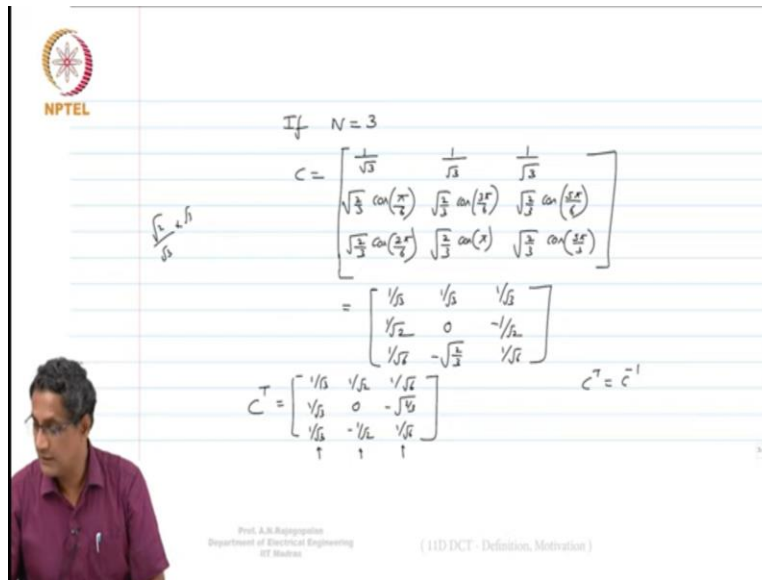 NPTEL
If N = 3
C = [ 1/√3 1/√3 1/√3
√(2/3) cos(π/6) √(2/3) cos(3π/6) √(2/3) cos(5π/6)
√(2/3) cos(2π/6) √(2/3) cos(π) √(2/3) cos(5π/3) ]
√2/√3 × √3
= [ 1/√3 1/√3 1/√3
1/√2 0 -1/√2
1/√6 -√(2/3) 1/√6 ]
C^T = C^-1
C^T = [ 1/√3 1/√2 1/√6
1/√3 0 -√(2/3)
1/√3 -1/√2 1/√6 ]
↑ ↑ ↑
Prof. A.N.Rajagopalan
Department of Electrical Engineering
IIT Madras
( 11D DCT - Definition, Motivation )